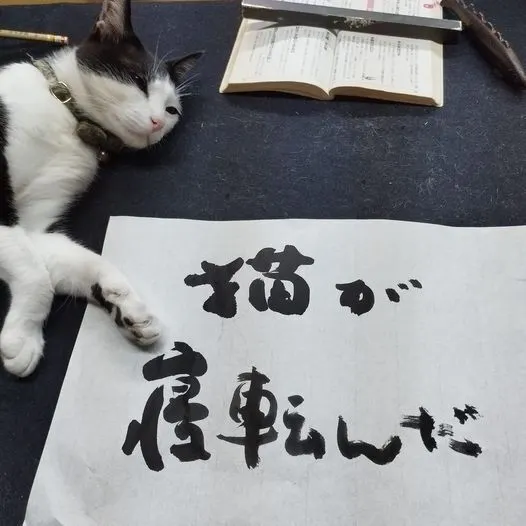 猫が
寝転んだ